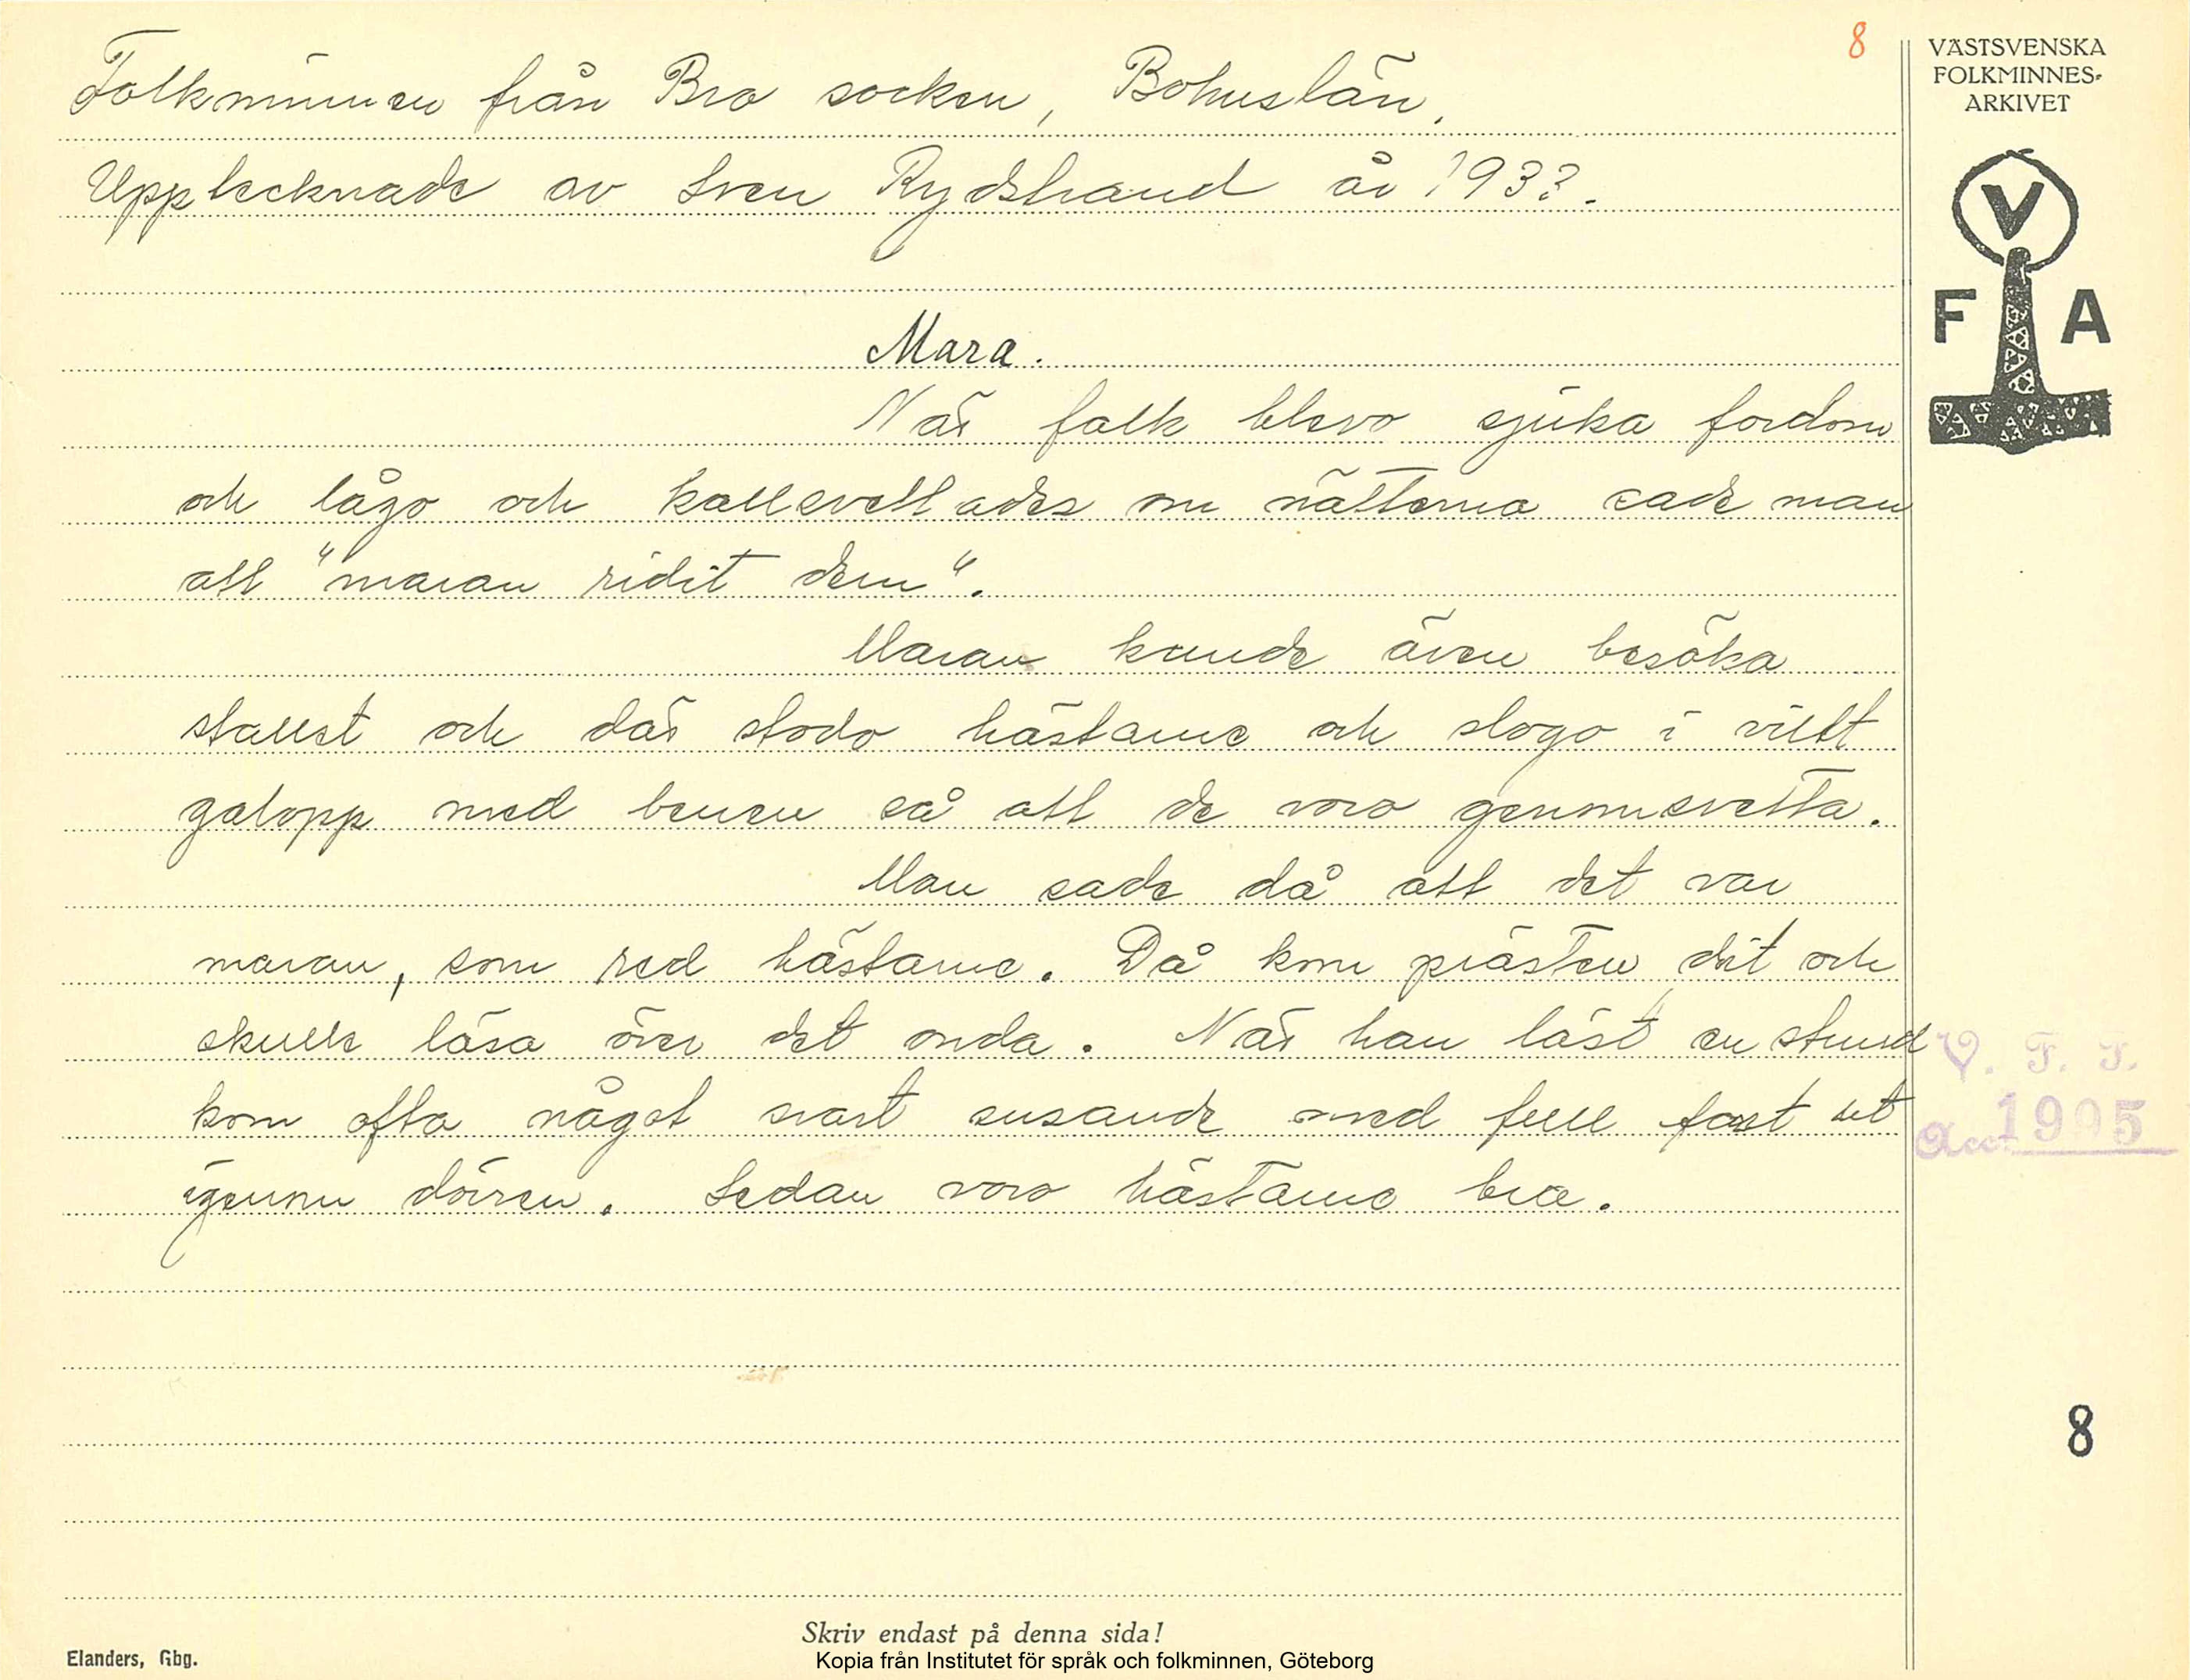 8
Folkminnen från Bro socken, Bohuslän.
Upptecknade av Sven Rydstrand år 1933.
Mara.
När folk blevo sjuka fordom
och lågo och kallsvettades om nätterna sade man
att "maran ridit dem".
Maran kunde även besöka
stallet och där stodo hästarne och slogo i vilt
galopp med benen så att de voro genomsvetta.
Man sade då att det var
maran, som red hästarne. Då kom prästen dit och
skulle läsa över det onda. När han läst en stund
kom ofta något svart susande med full fart ut
igenom dörren. Sedan voro hästarne bra.
VÄSTSVENSKA
FOLKMINNES-
ARKIVET
V
F A
V. F. F.
Acc. 1905
8
Skriv endast på denna sida!
Elanders, Gbg.
Kopia från Institutet för språk och folkminnen, Göteborg